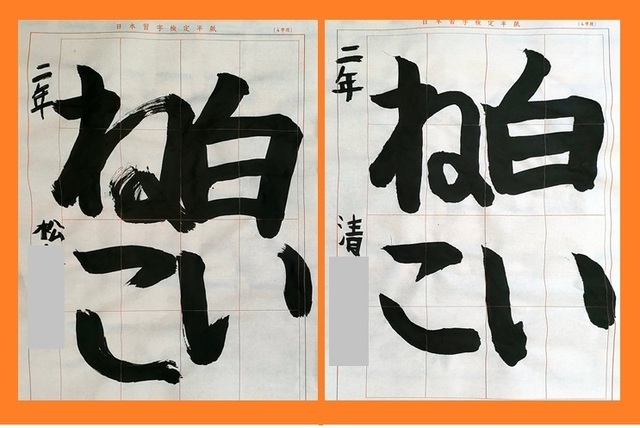 日本習字検定半紙
白い
ねこ
二年 松
日本習字検定半紙
白い
ねこ
二年 清